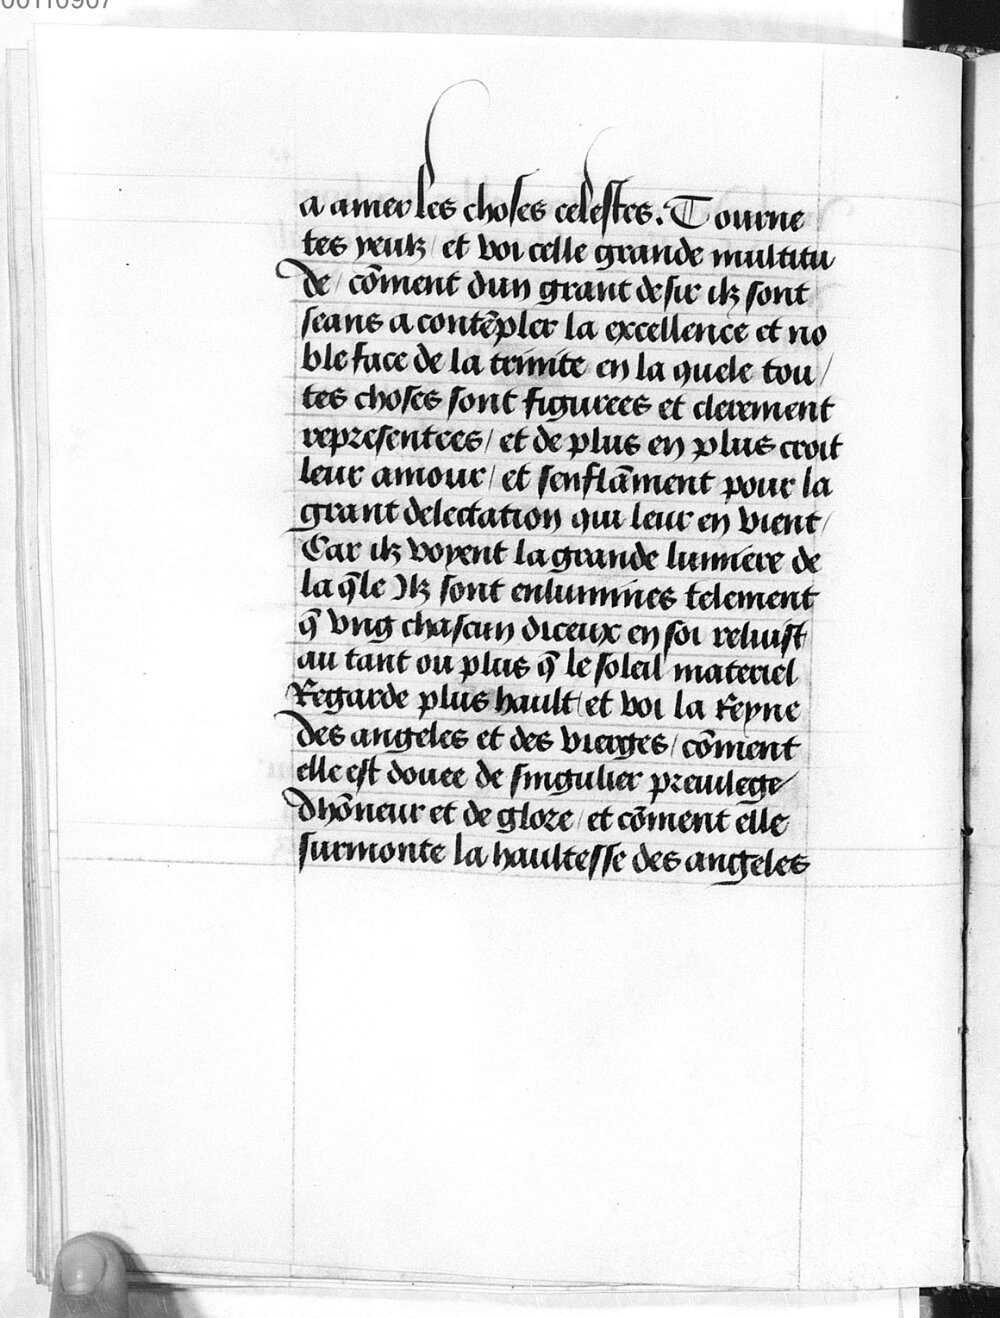 a amer les choses celestes. Tourne
tes yeulx / et voi celle grande multitu
de / cōment dun grant desir ilz sont
seans a contēpler la excellence et no
ble face de la trinite en la quele tou /
tes choses sont figurees et clerement
representees / et de plus en plus croit
leur amour / et senflāment pour la
grant delectation qui leur en vient /
Car ilz voyent la grande lumiere de
la q̄le Ilz sont enlumines telement
q̄ vng chascun diceux en soi reluist
au tant ou plus q̄ le soleil materiel
Regarde plus hault / et voi la Reyne
des angeles et des vierges / cōment
elle est douee de singulier preuilege
dhōneur et de glore / et cōment elle
surmonte la haultesse des angeles